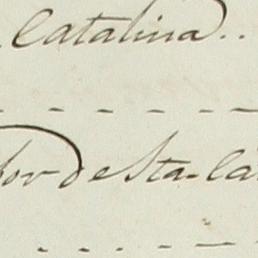 Catalina..
for de Sta. Ca